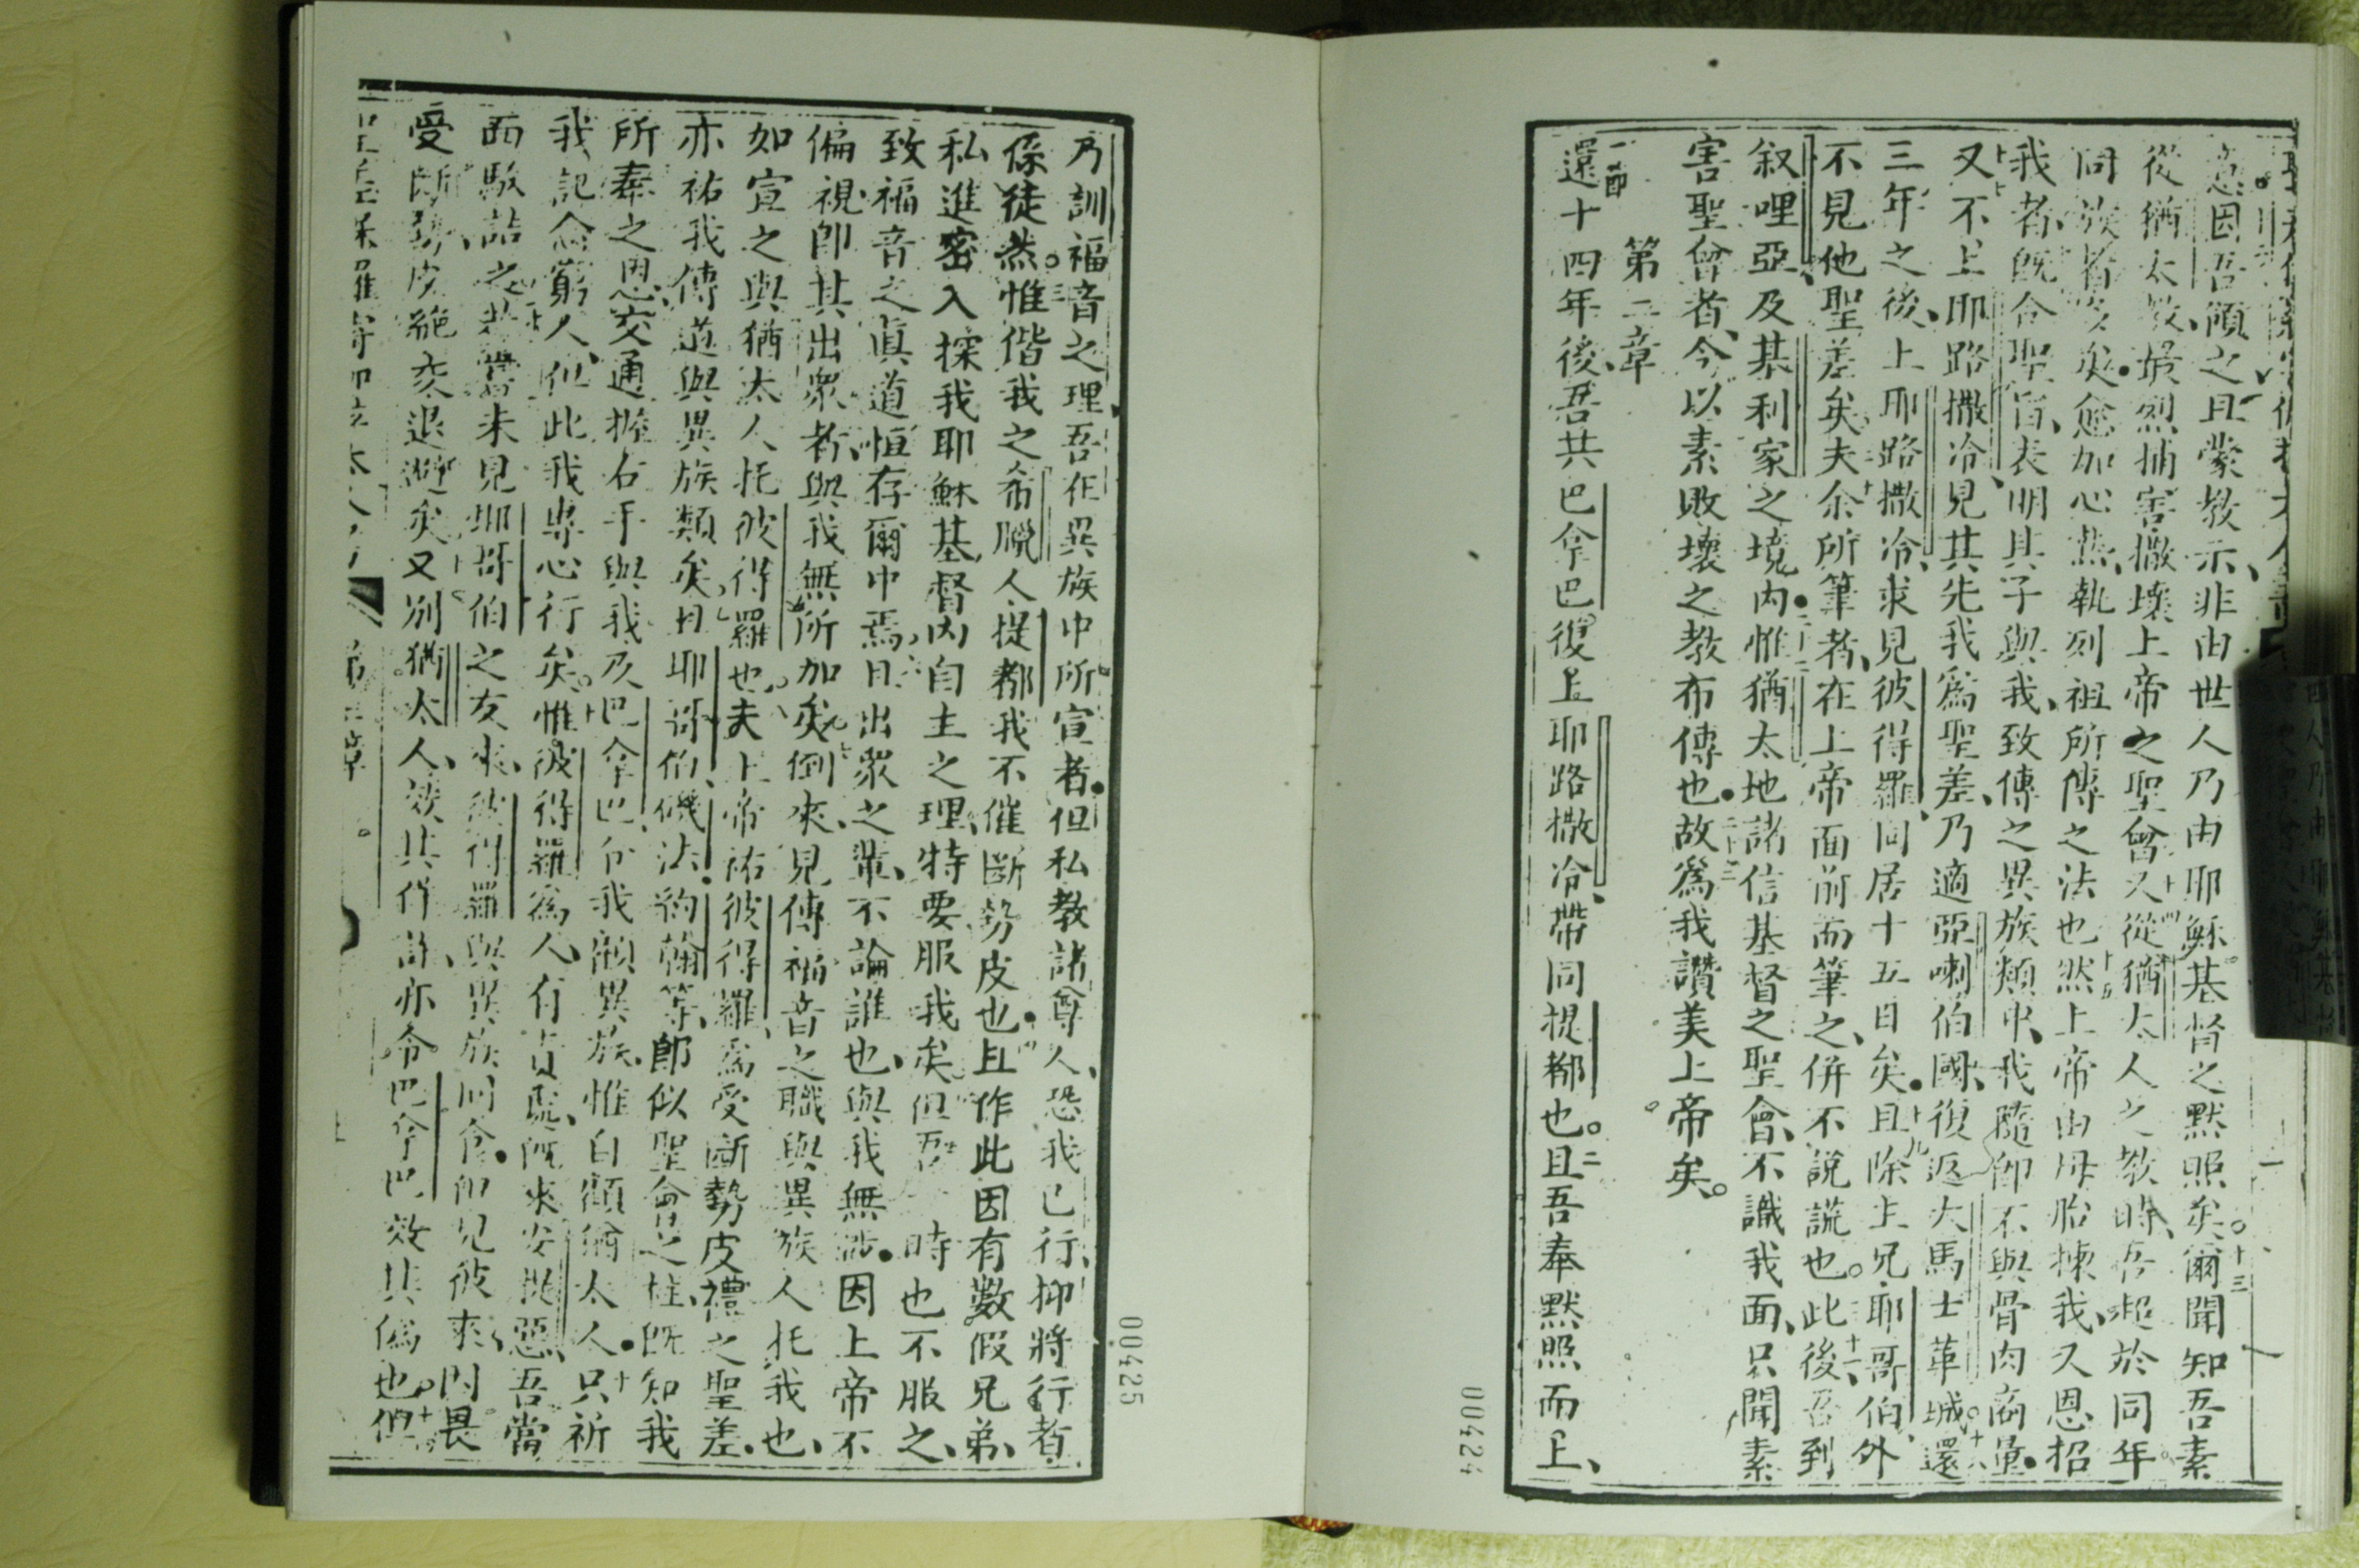 因吾傾之且蒙教示、非由世人乃由耶穌基督之黙照矣。十三爾聞知吾素
從猶太教、最烈捕害撒壞上帝之聖會、十四又從猶太人之教時、吾超於同年
同族者多矣、愈加心熱、執列祖所傳之法也。十五然上帝由母胎揀我、又恩招
我者、旣合聖旨、表明其子與我、致傳之異族類中、我隨卽不與骨肉商量、
十七又不上耶路撒冷、見其先我爲聖差、乃適亞喇伯國、復返大馬士革城。十八還
三年之後、上耶路撒冷、求見彼得羅、同居十五日矣。十九且除上兄耶哥伯外、
不見他聖差矣。夫余所筆者、在上帝面前而筆之、併不說謊也。此後吾到
叙哩亞、及基利家之境内、惟猶太地諸信基督之聖會、不識我面、只聞素
害聖會者、今以素敗壞之教布傳也。故爲我讚美上帝矣。
第二章
一節還十四年後、吾共巴拿巴、復上耶路撒冷、帶同提都也。二且吾奉黙照而上、
00424
乃訓福音之理、吾在異族中所宣者、但私教諸尊人、恐我已行、抑將行者、
係徒然。三惟偕我之希臘人提都、我不催斷勢皮也。四且作此因有數假兄弟、
私進密入探我耶穌基督内自主之理、特要服我矣。但吾 時也不服之、
致福音之眞道恒存爾中焉。且出衆之輩、不論誰也、與我無涉。因上帝不
偏視、卽其出衆者、與我無所加矣。倒來見傳福音之職與異族人托我也、
如宣之與猶太人托彼得羅也。夫上帝祐彼得羅、爲受斷勢皮禮之聖差、
亦祐我傳道與異族類矣。且耶哥伯、磯法、約翰等、卽似聖會之柱、旣知我
所奉之恩、交通握右手與我及巴拿巴、令我顧異族、惟自顧猶太人。十只祈
我記念窮人、但此我專心行矣。惟彼得羅爲人有責處、旣來安抵惡、吾當
面駁詰之。蓋嘗未見耶哥伯之友來、彼得羅與異族同食、卽見彼來、因畏
受斷勢皮、絶交退避矣。又別猶太人、效其作、許亦令巴拿巴效其僞也。
00425